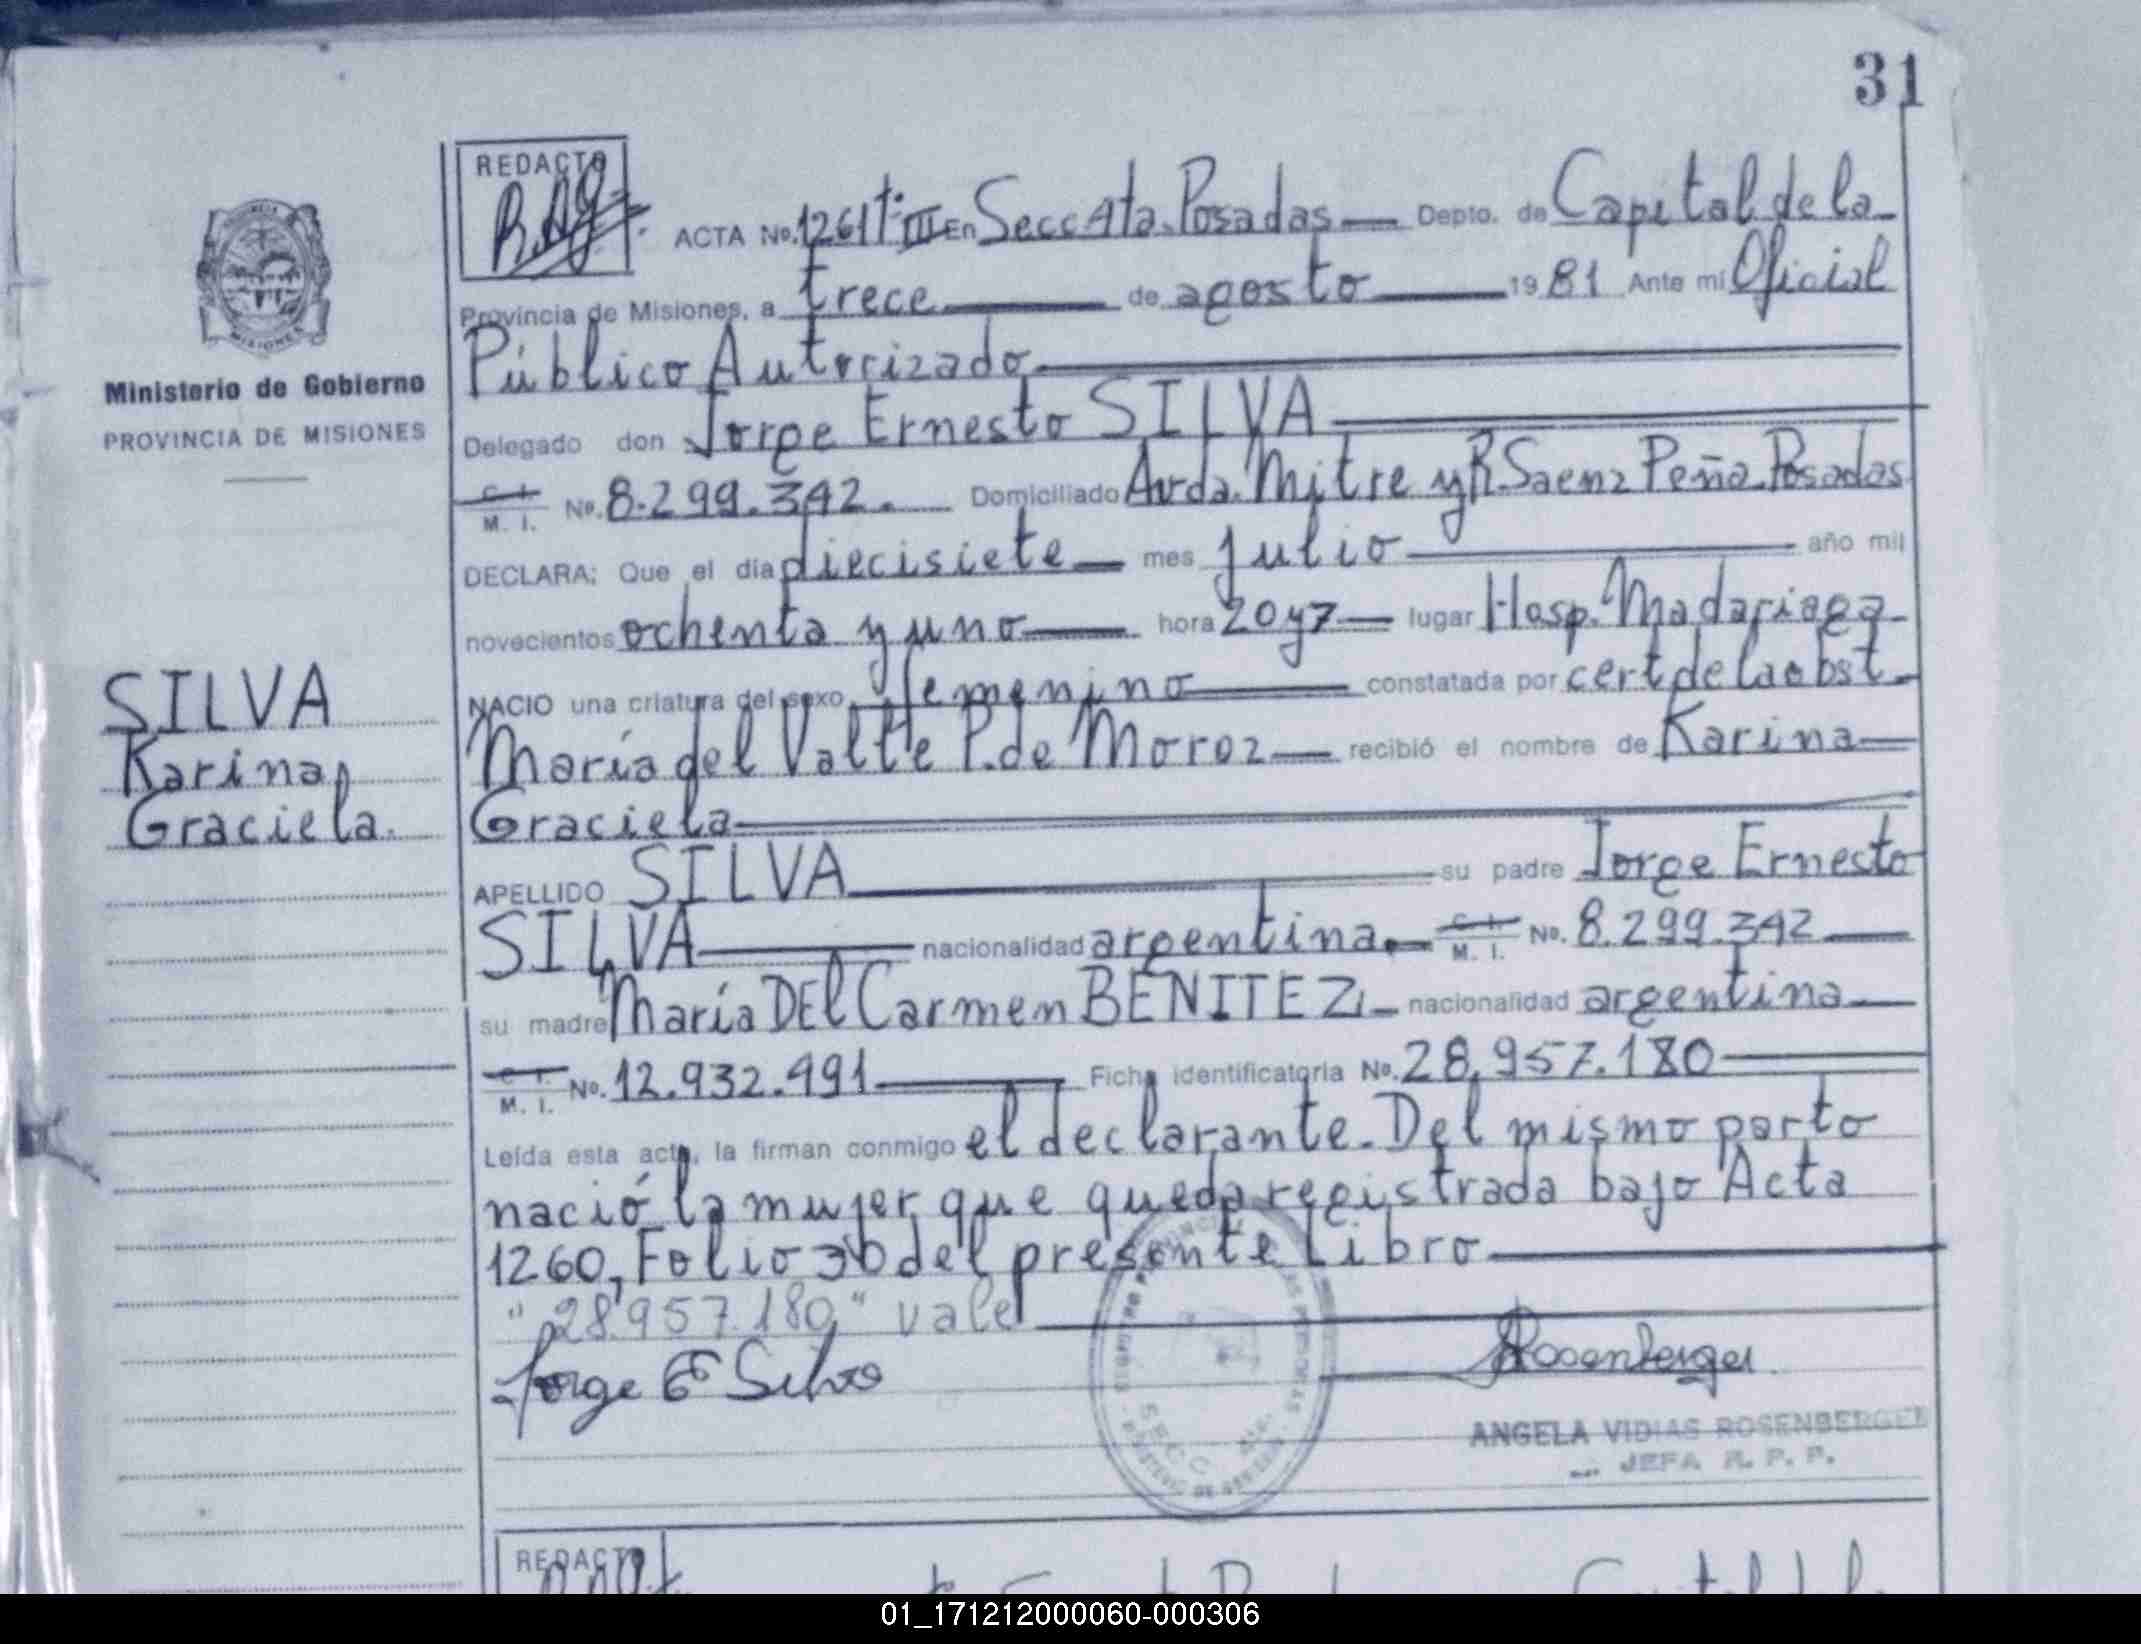 31
REDACTO
ACTA No. 1261 Tº III En Secc 4ta. Posadas Depto. de Capital de la
Provincia de Misiones, a trece de agosto 1981 Ante mí Oficial
Público Autorizado
Delegado don Jorge Ernesto SILVA
C. I.
M. I. No. 8.299.342. Domiciliado Avda. Mitre y R. Saenz Peña. Posadas
DECLARA: Que el día diecisiete mes julio año mil
novecientos ochenta y uno hora 20 y 7 lugar Hosp. Madariaga
NACIO una criatura del sexo femenino constatada por cert de la obst.
María del Valle P. de Moroz recibió el nombre de Karina
Graciela
APELLIDO SILVA su padre Jorge Ernesto
SILVA nacionalidad argentina. C. I. M. I. No. 8.299.342
su madre María DEL Carmen BENITEZ nacionalidad argentina
C. I.
M. I. No. 12.932.491 Ficha identificatoria No. 28.957.180
Leída esta acta, la firman conmigo el declarante. Del mismo parto
nació la mujer que queda registrada bajo Acta
1260, Folio 30 del presente Libro
"28.957.180" vale
Jorge E Silva
Rosenberger
ANGELA VIDIAS ROSENBERGER
JEFA R. P. P.
MISIONES
Ministerio de Gobierno
PROVINCIA DE MISIONES
SILVA
Karina
Graciela.
SECC 4ta.
REDACTO
01_171212000060-000306